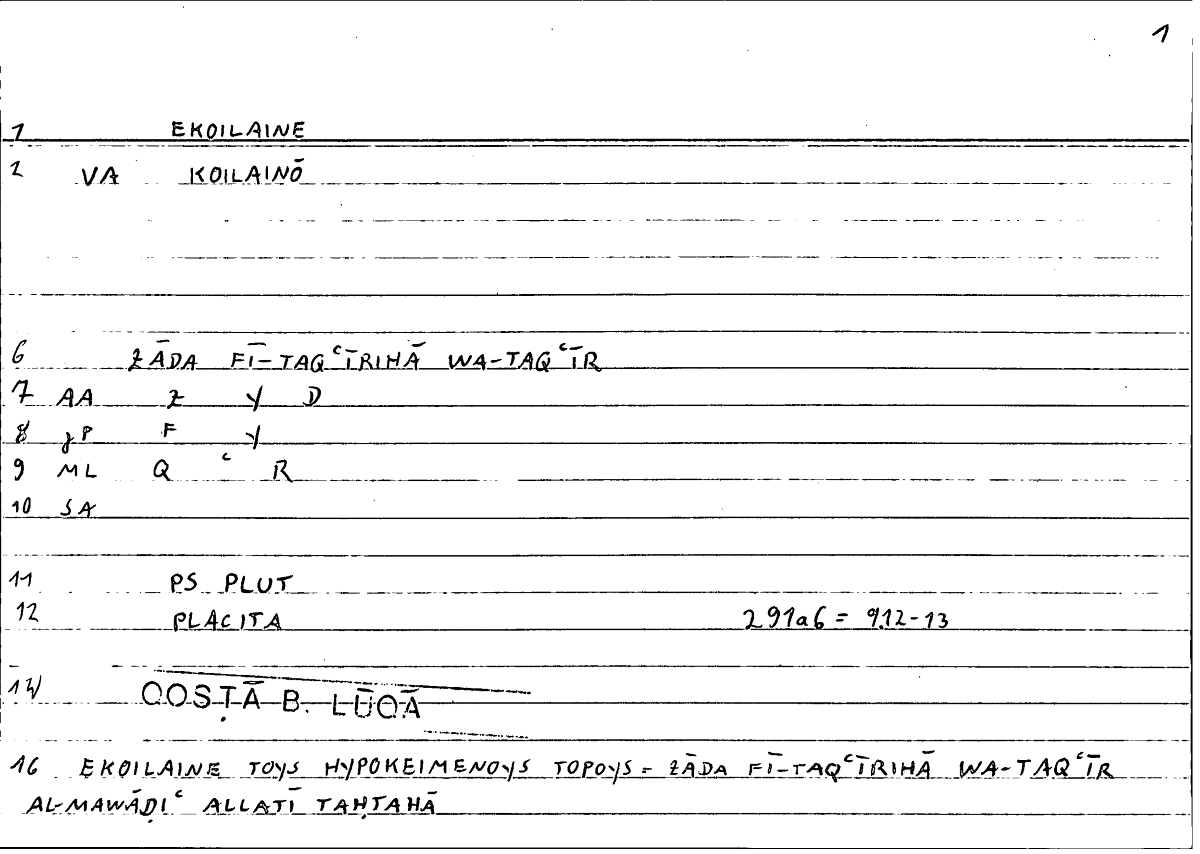 1
1 EKOILAINE
2 VA KOILAINŌ
6 ZĀDA FĪ-TAQʿĪRIHĀ WA-TAQʿĪR
7 AA Z Y D
8 JP F Y
9 ML Q ʿ R
10 SA
11 PS PLUT
12 PLACITA 291a6 = 9.12-13
14 QOSṬĀ B. LŪQĀ
16 EKOILAINE TOYS HYPOKEIMENOYS TOPOYS = ZĀDA FĪ-TAQʿĪRIHĀ WA-TAQʿĪR
AL-MAWĀḌIʿ ALLATĪ TAḤTAHĀ